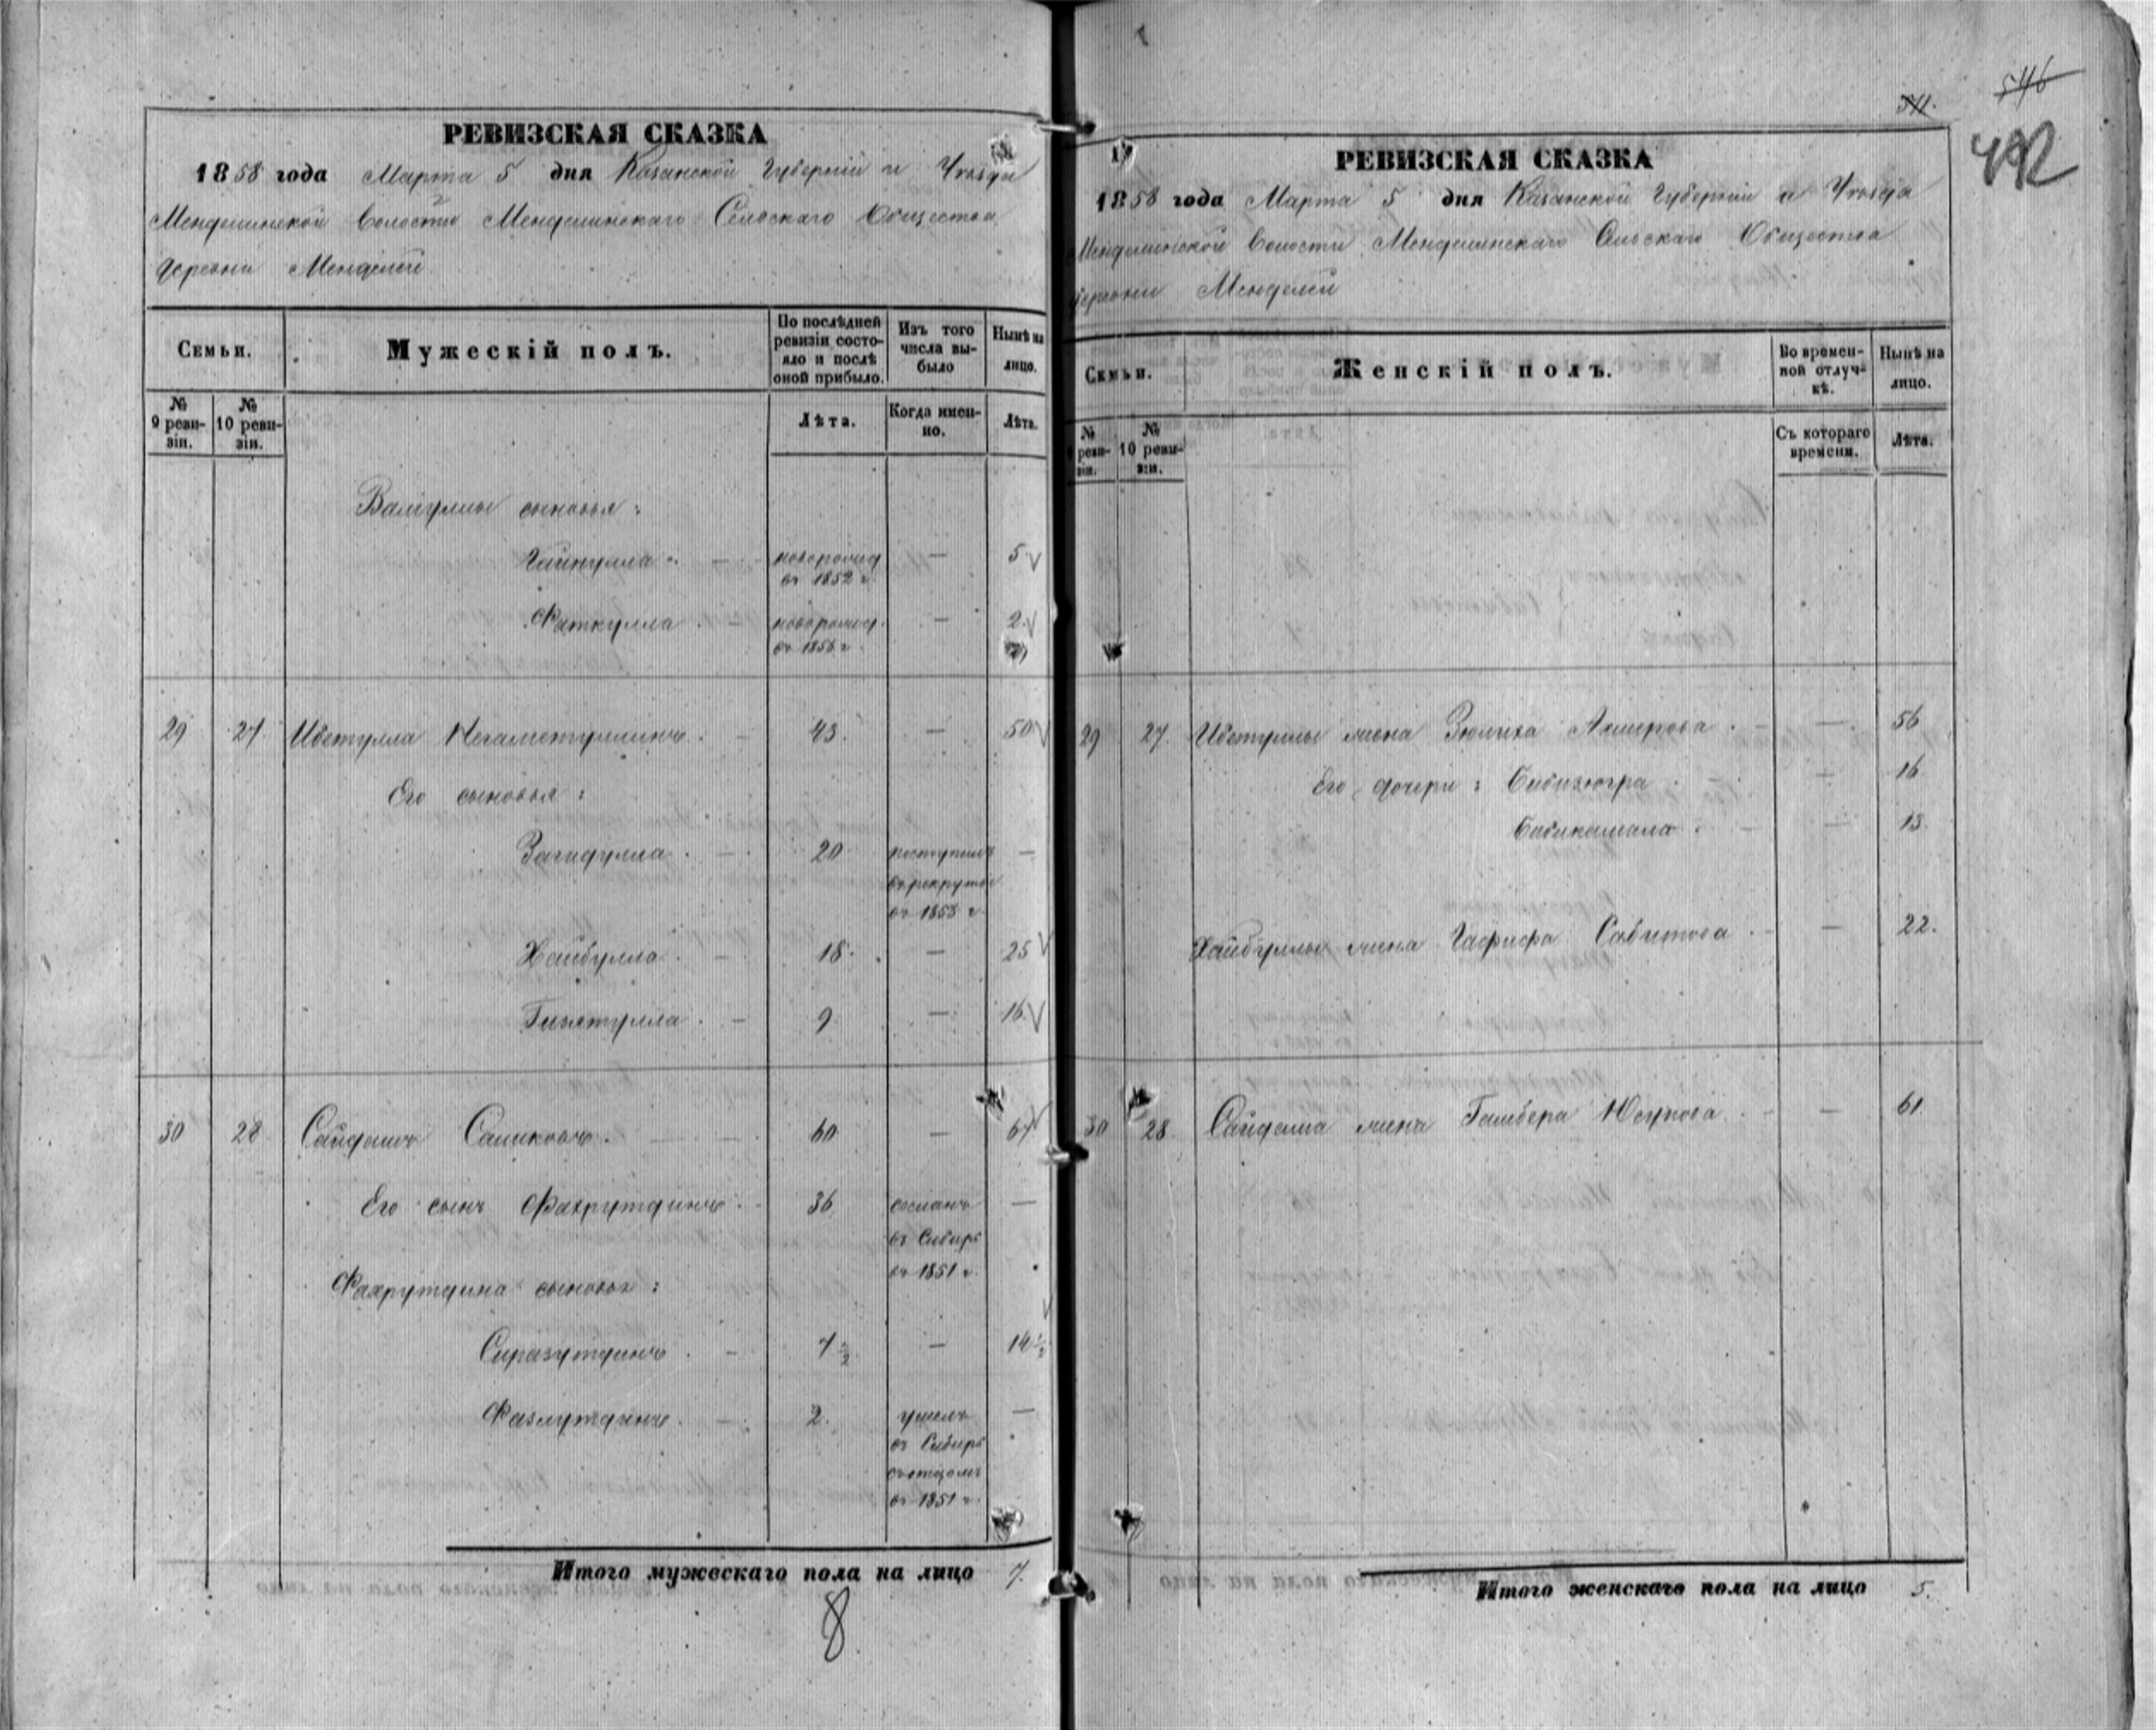 РЕВИЗСКАЯ СКАЗКА
1858 года Марта 5 дня Казанской Губернiи и Уѣзда
Менделинской Волости Менделинскаго Сельскаго Общества
деревни Менделей
Семьи. Мужескій полъ. По послѣдней ревизіи состояло и послѣ оной прибыло. Изъ того числа выбыло Нынѣ на лицо.
№ 9 ревизіи. № 10 ревизіи. Лѣта. Когда именно. Лѣта.
Валиуллы сыновья:
Гайнулла новорожд — 5
въ 1852 г.
Фаткулла новорожд. — 2
29 27 43. — 50
Его сыновья:
Загидулла 20 поступилъ —
въ рекруты
въ 1853 г.
Хайбулла 18. — 25
Гизетулла 9 — 16
30 28 Сайдашъ Салиховъ. 60 — 67
Его сынъ Фахрутдинъ 36 сосланъ —
въ Сибирь
въ 1851 г.
Фахрутдина сыновья:
Сиразутдинъ 7 1/2 — 14 1/2
Фазлутдинъ 2. ушелъ —
въ Сибирь
съ отцомъ
въ 1851 г.
Итого мужескаго пола на лицо 7.
8
546
492
РЕВИЗСКАЯ СКАЗКА
1858 года Марта 5 дня Казанской Губернiи и Уѣзда
Менделинской Волости Менделинскаго Сельскаго Общества
деревни Менделей
Семьи. Женскій полъ. Во временной отлучкѣ. Нынѣ на лицо.
№ 9 ревизіи. № 10 ревизіи. Съ котораго времени. Лѣта.
29 27. жена Зюлиха — 56
Его дочери: Бибизюгра — 16
Бибикамала — 13.
Хайбуллы жена Гафифа Сабитова — 22.
30 28. Сайдаша жена Юсупова — 61
Итого женскаго пола на лицо 5.